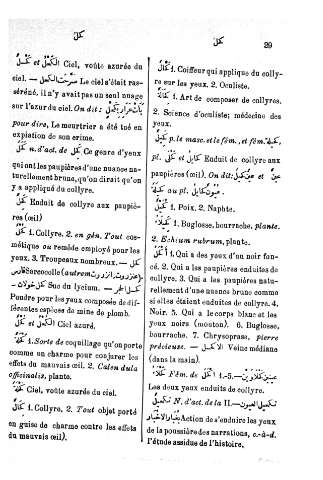 كحل
كحل
29
كَحْل et كُحَّل Ciel, voûte azurée du
ciel. — صرّحت الكحل Le ciel s'était ras-
séréné, il n'y avait pas un seul nuage
sur l'azur du ciel. On dit:
pour dire, Le meurtrier a été tué en
expiation de son crime.
كَحَل n. d'act. de كحل Ce genre d'yeux
qui ont les paupières d'une nuance na-
turellement brune, qu'on dirait qu'on
y a appliqué du collyre.
Enduit de collyre aux paupiè-
res (œil)
كُحْل 1. Collyre. 2. en gén. Tout cos-
métique ou remède employé pour les
yeux. 3. Troupeaux nombreux. — كحل
فارس Sarcocolle (autrem.
Suc du lycium. —
Poudre pour les yeux composée de dif-
férentes espèces de mine de plomb.
Ciel azuré.
1. Sorte de coquillage qu'on porte
comme un charme pour conjurer les
effets du mauvais œil. 2. Calendula
officinalis, plante.
Ciel, voûte azurée du ciel.
1. Collyre. 2. Tout objet porté
en guise de charme contre les effets
du mauvais œil).
كحّال 1. Coiffeur qui applique du colly-
re sur les yeux. 2. Oculiste.
كحالة 1. Art de composer de collyres.
2. Science d'oculiste; médecine des
yeux.
كحيل p. le masc. et le fém., et fém.
pl. Enduit de collyre aux
paupières (œil). On dit: عين كحيل et عين
كحيلة au pl.
1. Poix. 2. Naphte.
1. Buglosse, bourrache, plante.
2. Echium rubrum, plante.
أكحل 1. Qui a des yeux d'un noir fon-
cé. 2. Qui a les paupières enduites de
collyre. 3. Qui a les paupières natu-
rellement d'une nuance brune comme
si elles étaient enduites de collyre. 4.
Noir. 5. Qui a le corps blanc et les
yeux noirs (mouton). 6. Buglosse,
bourrache. 7. Chrysoprase, pierre
précieuse. — الاكحل Veine médiane
(dans la main).
كحلاء Fém. de أكحل 1.-5. —
Les deux yeux enduits de collyre.
تكحيل N. d'act. de la II. — تكحيل العيون
بغبار الاخبار Action de s'enduire les yeux
de la poussière des narrations, c.-à-d.
l'étude assidue de l'histoire.